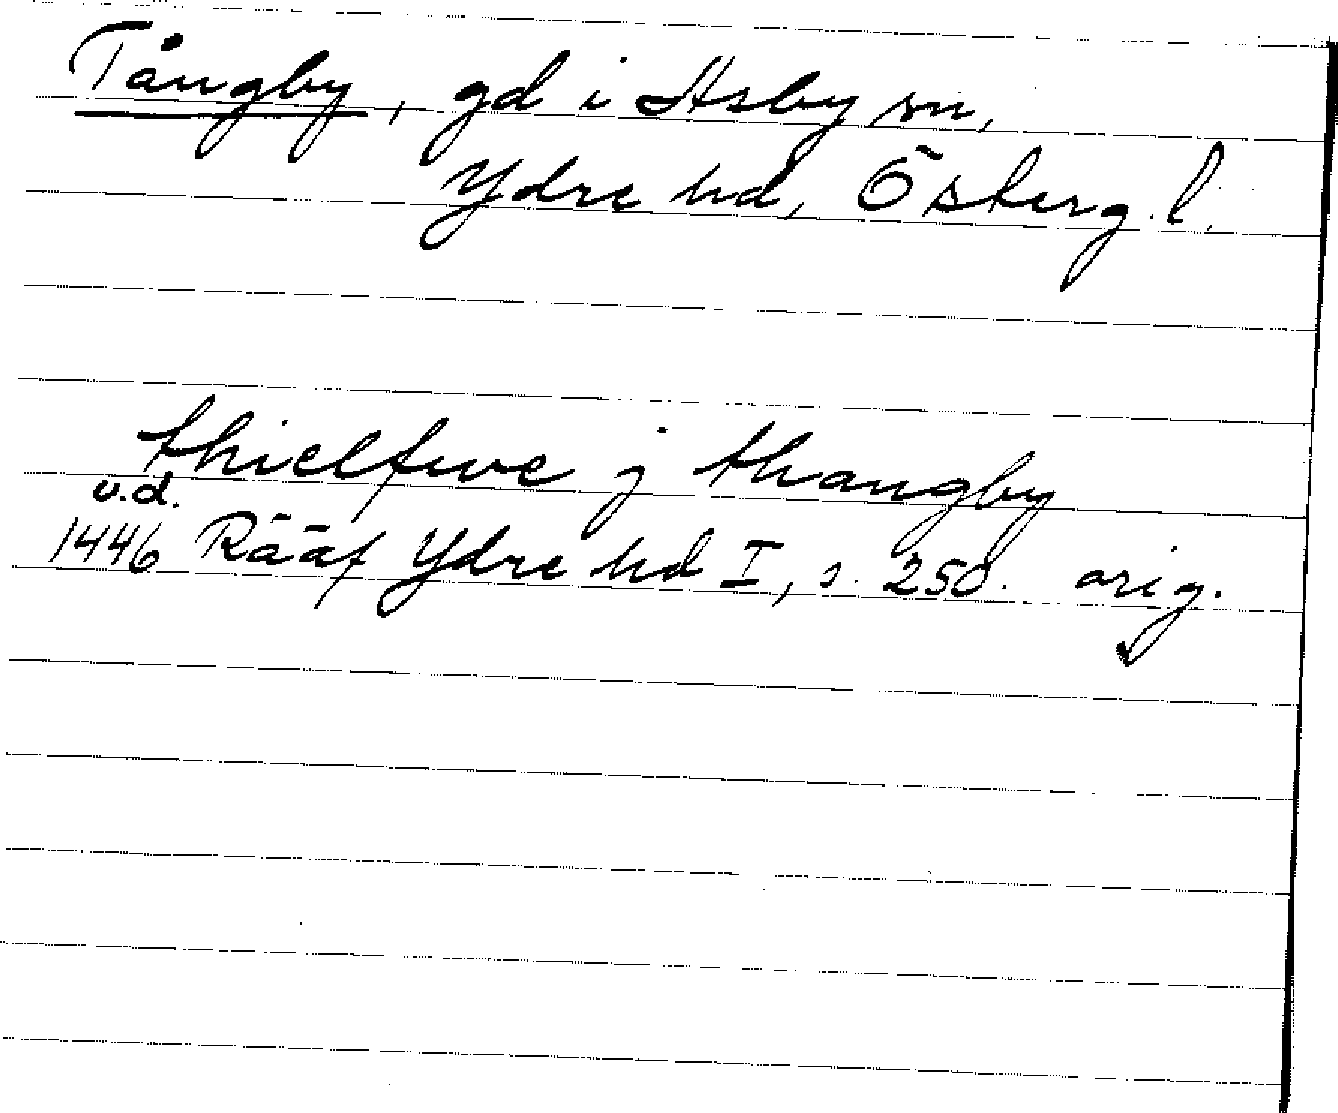 Tångby, gd i Asby sn,
Ydre hd, Österg. l.
thielfwe j thangby
u.d.
1446 Rääf Ydre hd I, s. 250. orig.